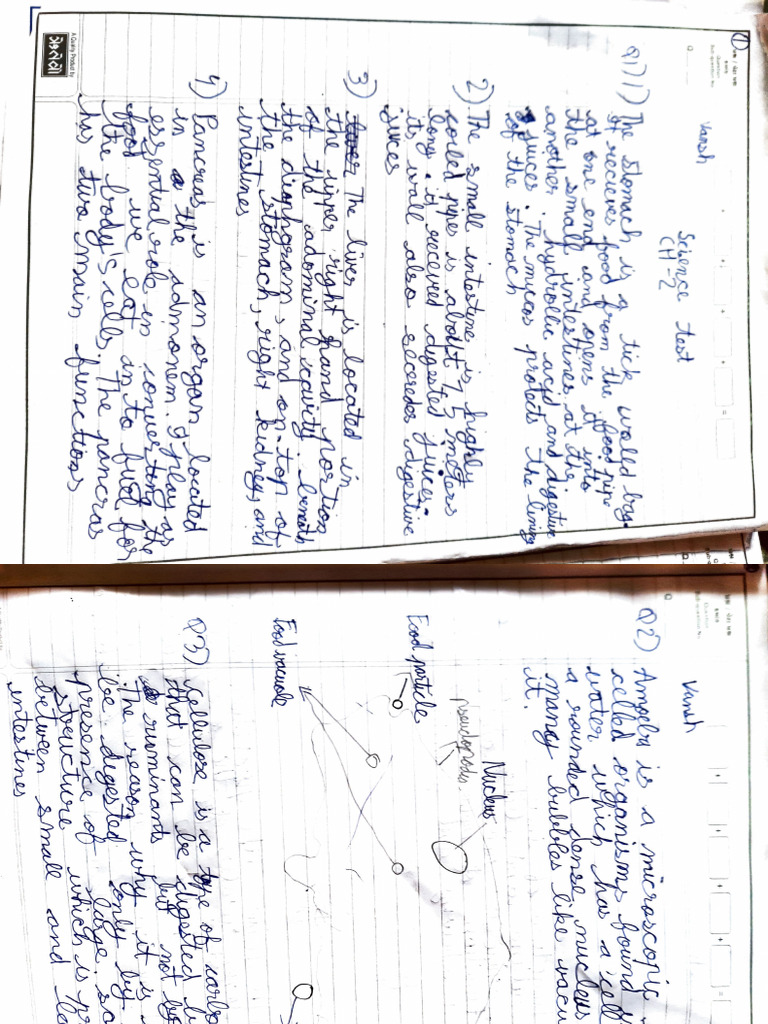 Vansh
Science test
CH-2
Q1) 1) The stomach is a tick walld bag
It recieves food from the food pipe
at one end and opens it into
the small intestines at the
another hydrollic acid and digestive
juces. The mucos protects the lining
of the stomach
2) The small intestine is highly
coiled pipes is about 7.5 meters
long. it received digested juces.
its wall also seceredes digestive
juces
3) The liver is located in
the upper right hand portion
of the adominal cavity. beneath
the diaphgram, and on top of
the stomach, right kidney, and
intestines
4) Pancras is an organ located
in the idmonem. It play as
essential role in converting the
food we eat in to fuel for
the body's cells. The pancras
has two main functions
Vansh
Q2) Ameba is a microscopic
celled organisms found
water which has a cell
a rounded dense nucleus
maney bubbles like vacu
it.
Nucleus
pseudopods.
Food particle
Food vacuole
Q3) Cellulose is a type of carbo
that can be digested
ruminants but not
The reason why it is
be digested only by
presence of large
structure which is
between small and
intestines